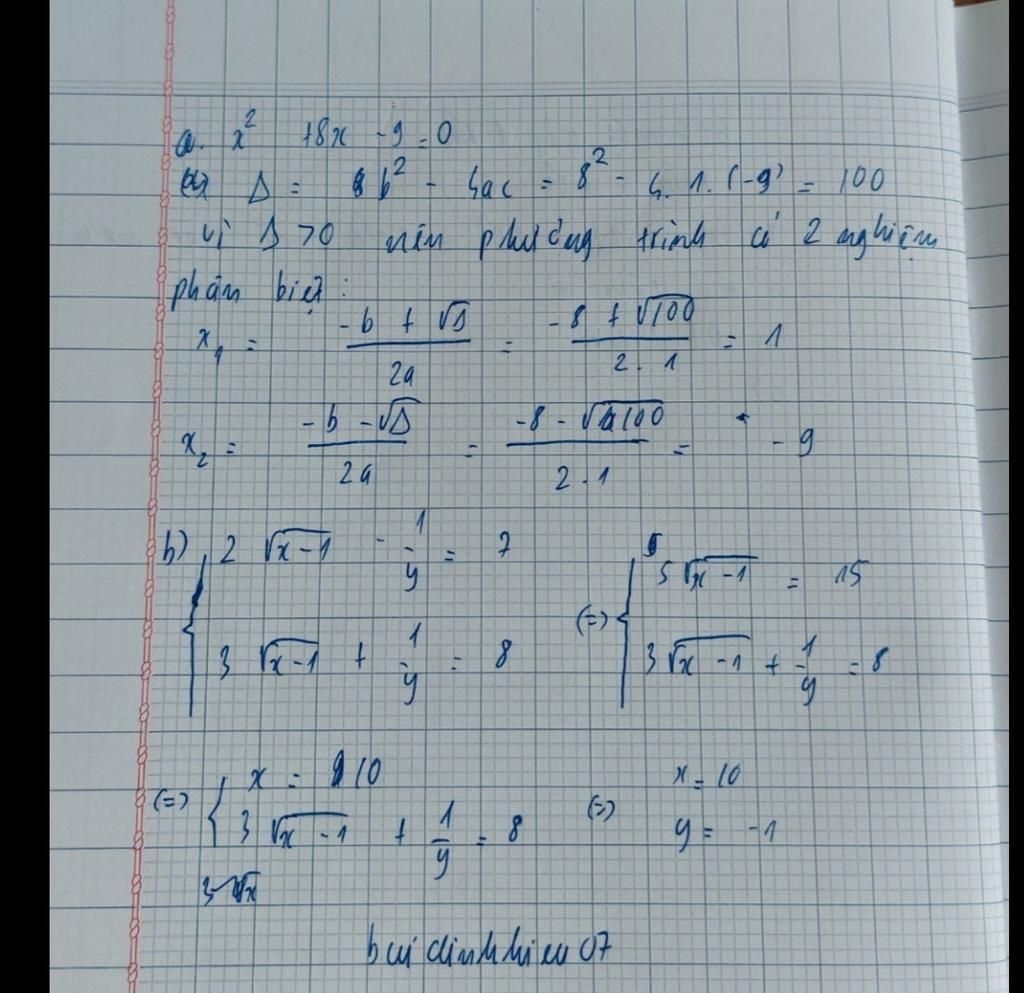 a. x² +8x - 9 = 0
Δ = b² - 4ac = 8² - 4.1.(-9) = 100
vì Δ > 0 nên phương trình có 2 nghiệm
phân biệt :
x₁ = (-b + √Δ)/2a = (-8 + √100)/2.1 = 1
x₂ = (-b - √Δ)/2a = (-8 - √100)/2.1 = -9
b) { 2√(x-1) - 1/y = 7
3√(x-1) + 1/y = 8
(=) { 5√(x-1) = 15
3√(x-1) + 1/y = 8
(=) { x = 10
3√(x-1) + 1/y = 8
(=) x = 10
y = -1
3√x
bui dinh hieu 07